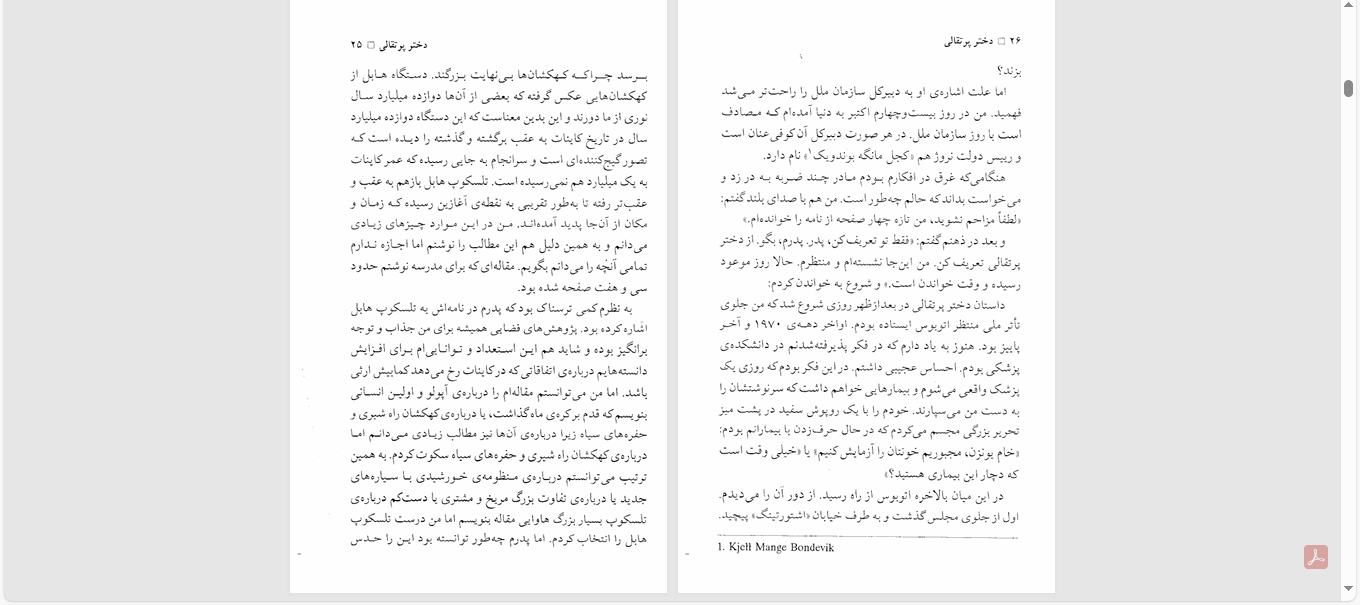 دختر پرتقالی □ ۲۵
بـرسد چـراکـه کـهکشان‌ها بـی‌نهایت بـزرگند. دستگاه هـابل از
کهکشان‌هایی عکس گرفته که بعضی از آن‌ها دوازده میلیارد سـال
نوری از ما دورند و این بدین معناست که این دستگاه دوازده میلیارد
سال در تاریخ کاینات به عقب برگشته و گذشته را دیـده است کـه
تصور گیج‌کننده‌ای است و سرانجام به جایی رسیده که عمر کاینات
به یک میلیارد هم نمی‌رسیده است. تلسکوپ هابل بازهم به عقب و
عقب‌تر رفته تا به‌طور تقریبی به نقطه‌ی آغازین رسیده کـه زمـان و
مکان از آن‌جا پدید آمده‌انـد. مـن در ایـن مـوارد چـیزهای زیـادی
می‌دانم و به همین دلیل هم این مطالب را نوشتم اما اجـازه نـدارم
تمامی آنچه را می‌دانم بگویم. مقاله‌ای‌که برای مدرسه نوشتم حدود
سی و هفت صفحه شده بود.
به نظرم کمی ترسناک بود که پدرم در نامه‌اش به تلسکوپ هابل
اشاره‌کرده بود. پژوهش‌های فضایی همیشه برای من جذاب و توجه
برانگیز بوده و شاید هم ایـن اسـتعداد و تـوانـایی‌ام بـرای افـزایش
دانسته‌هایم درباره‌ی اتفاقاتی که در کاینات رخ می‌دهد کمابیش ارثی
باشد. اما من می‌توانستم مقاله‌ام را درباره‌ی آپولو و اولیـن انسـانی
بنویسم که قدم بر کره‌ی ماه گذاشت، یا درباره‌ی کهکشان راه شیری و
حفره‌های سیاه زیرا درباره‌ی آن‌ها نیز مطالب زیادی مـی‌دانـم امـا
درباره‌ی کهکشان راه شیری و حفره‌های سیاه سکوت کردم. به همین
ترتیب می‌توانستم دربـاره‌ی مـنظومه‌ی خـورشیدی بـا سـیاره‌های
جدید یا درباره‌ی تفاوت بزرگ مریخ و مشتری یا دست‌کم درباره‌ی
تلسکوپ بسیار بزرگ هاوایی مقاله بنویسم اما من درست تلسکوپ
هابل را انتخاب کردم. اما پدرم چه‌طور توانسته بود ایـن را حـدس
۲۶ □ دختر پرتقالی
بزند؟
اما علت اشاره‌ی او به دبیرکل سازمان ملل را راحت‌تر مـی‌شد
فهمید. من در روز بیست‌وچهارم اکتبر به دنیا آمده‌ام کـه مـصادف
است با روز سازمان ملل. در هر صورت دبیرکل آن کوفی‌عنان است
و رییس دولت نروژ هم «کجل مانگه بوندویک۱» نام دارد.
هنگامی‌که غرق در افکارم بـودم مـادر چـند ضـربه بـه در زد و
می‌خواست بداند که حالم چه‌طور است. من هم با صدای بلند گفتم:
«لطفاً مزاحم نشوید، من تازه چهار صفحه از نامه را خوانده‌ام.»
و بعد در ذهنم گفتم: «فقط تو تعریف کن، پدر. پدرم، بگو. از دختر
پرتقالی تعریف کن. من این‌جا نشسته‌ام و منتظرم. حالا روز موعود
رسیده و وقت خواندن است.» و شروع به خواندن کردم:
داستان دختر پرتقالی در بعدازظهر روزی شروع شد که من جلوی
تأتر ملی منتظر اتوبوس ایستاده بودم. اواخر دهـه‌ی ۱۹۷۰ و آخـر
پاییز بود. هنوز به یاد دارم که در فکر پذیرفته‌شدنم در دانشکده‌ی
پزشکی بودم. احساس عجیبی داشتم. در این فکر بودم که روزی یک
پزشک واقعی می‌شوم و بیمارهایی خواهم داشت که سرنوشتشان را
به دست من می‌سپارند. خودم را با یک روپوش سفید در پشت میز
تحریر بزرگی مجسم می‌کردم که در حال حرف‌زدن با بیمارانم بودم:
«خام یونزن، مجبوریم خونتان را آزمایش کنیم» یا «خیلی وقت است
که دچار این بیماری هستید؟»
در این میان بالاخره اتوبوس از راه رسید. از دور آن را می‌دیدم.
اول از جلوی مجلس گذشت و به طرف خیابان «اشتورتینگ» پیچید.
1. Kjell Mange Bondevik